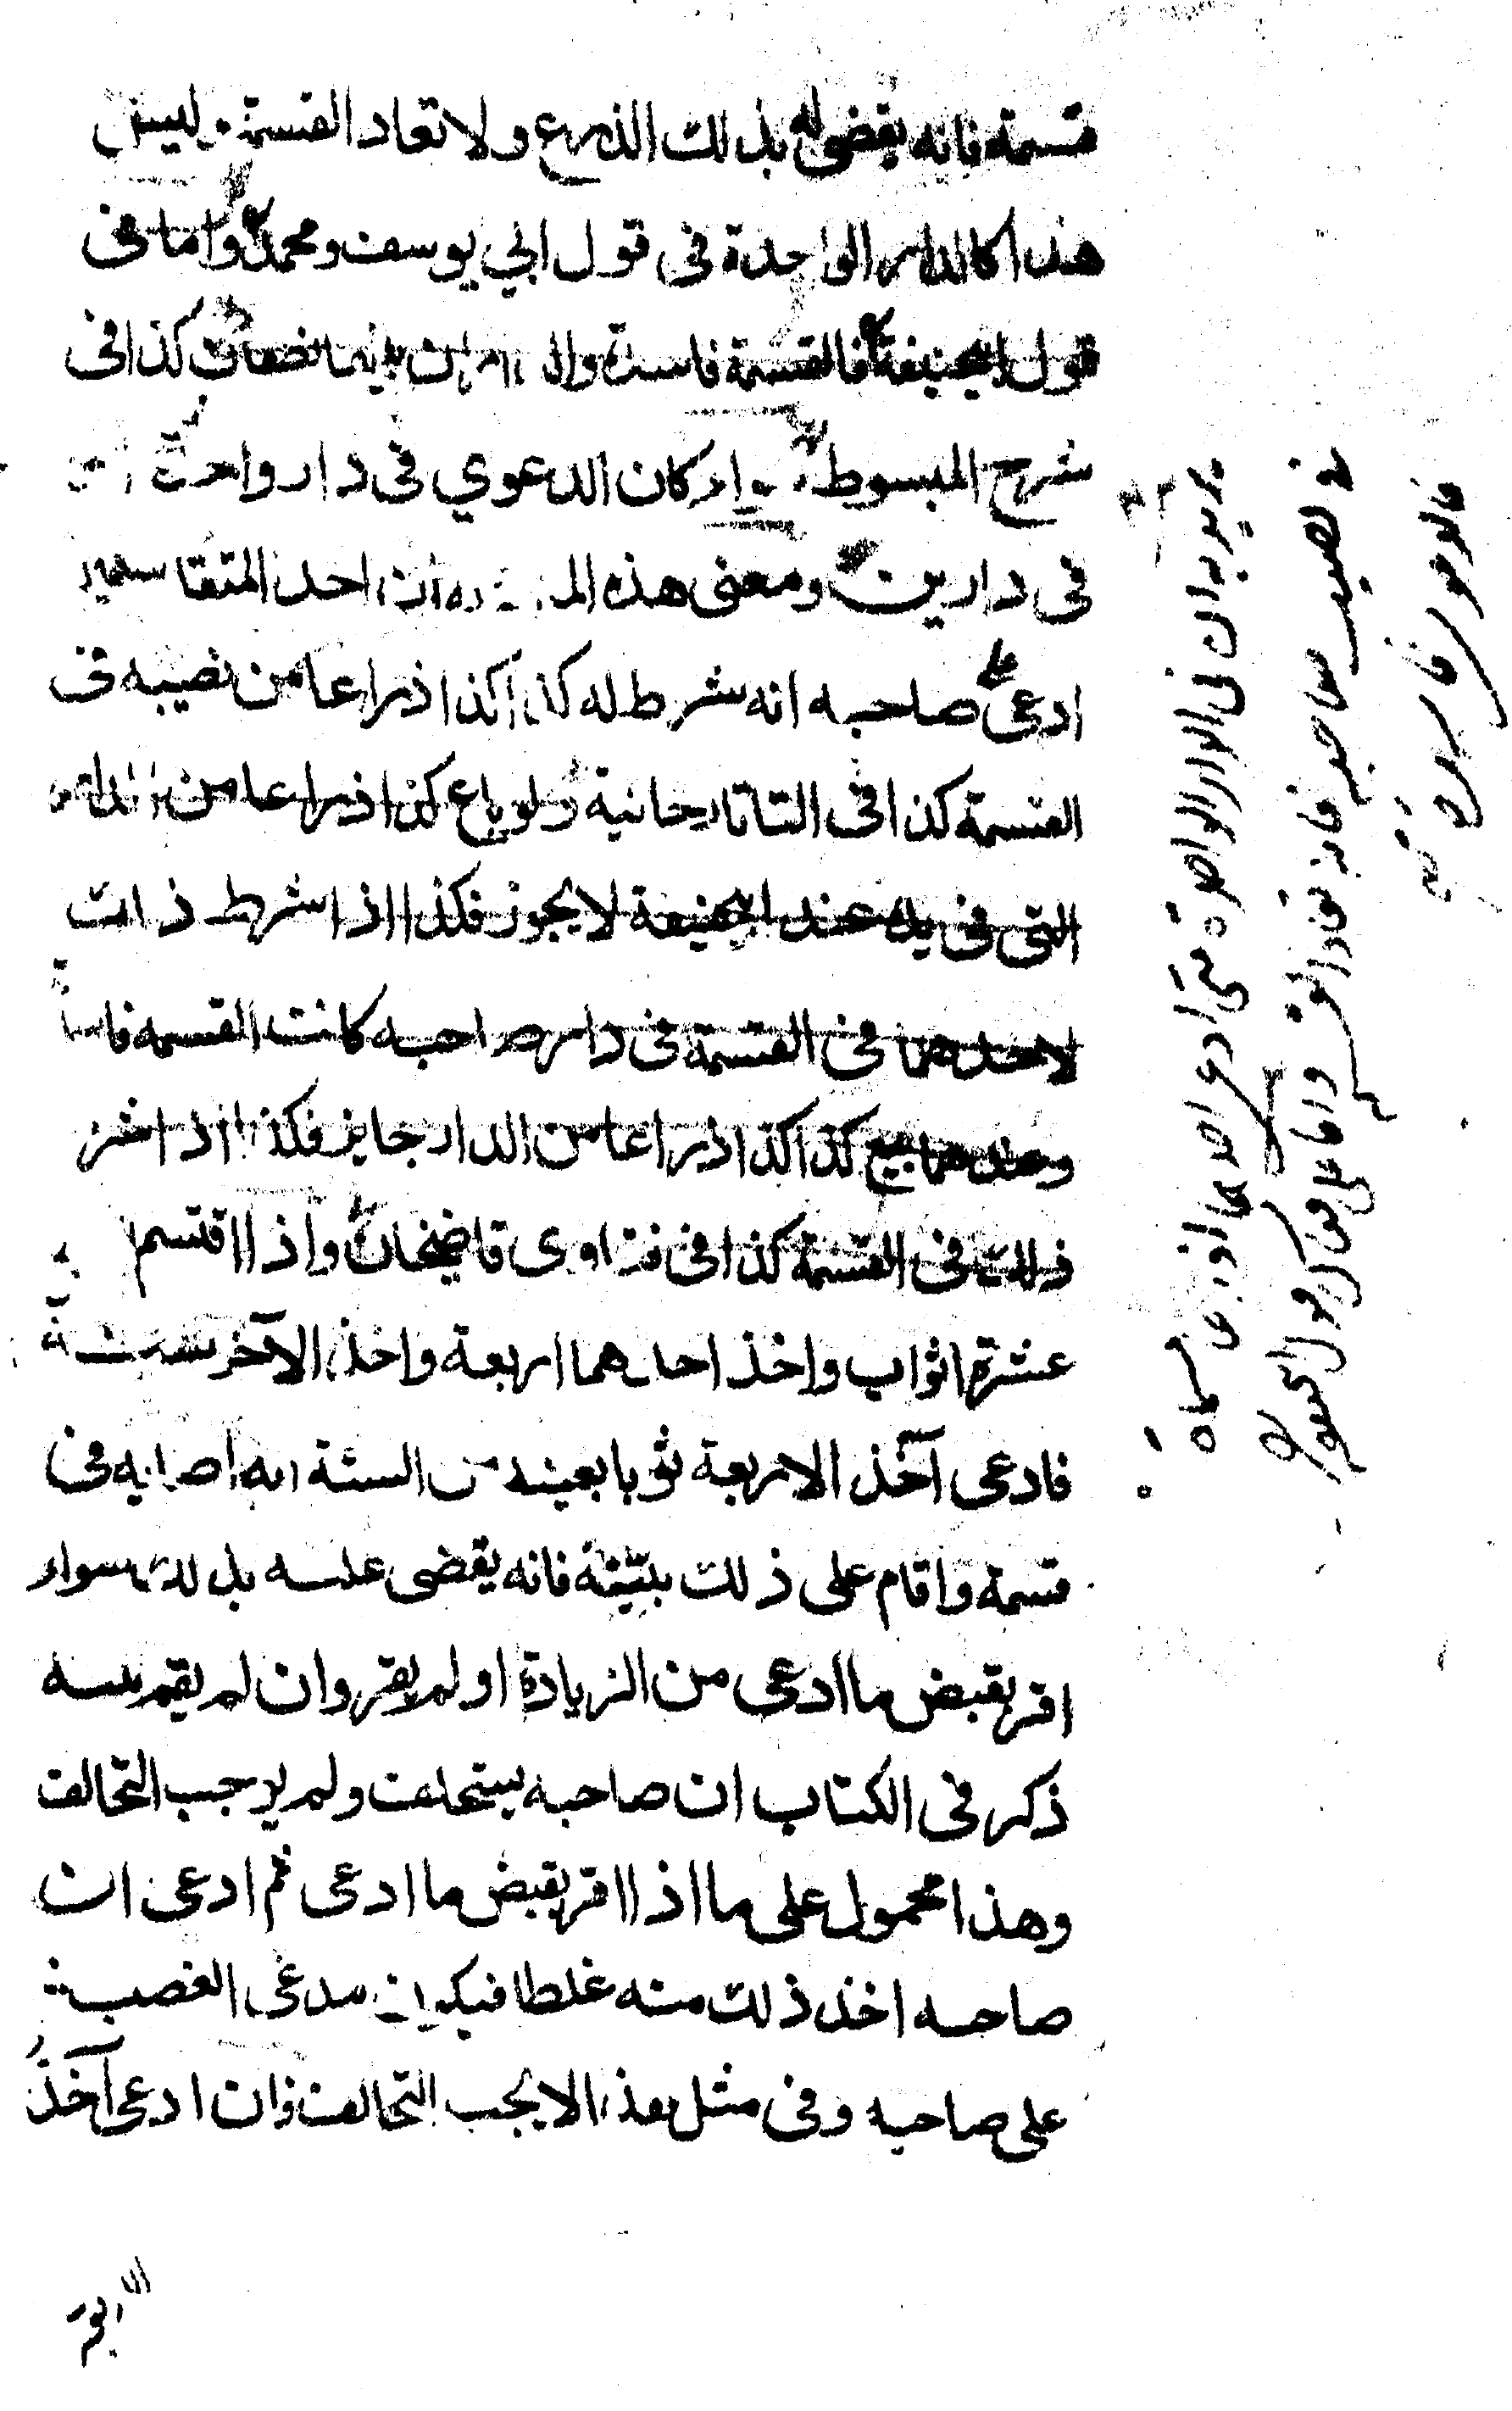 قسمة فانه يقضى له بذلك الذرع ولا تعاد القسمة وليس
هذا كالدار الواحدة فى قول ابي يوسف ومحمد واما فى
قول ابيحنيفة فالقسمة فاسدة والداران بينهما نصفان كذا فى
شرح المبسوط وان كان الدعوي فى دار واحدة
فى دارين ومعنى هذه ان احد المتقاسمين
ادعى على صاحبه انه شرط له كذا كذا ذراعا من نصيبه فى
القسمة كذا فى التاتارخانية ولو باع كذا ذراعا من الدار
التى فى يده عند ابيحنيفة لا يجوز فكذا اذا شرط ذلك
لاحدهما فى القسمة فى دار صاحبه كانت القسمة فاسدة
وعندهما بيع كذا كذا ذراعا من الدار جايز فكذا اذا شرط
ذلك فى القسمة كذا فى فتاوى قاضيخان واذا اقتسم
عشرة اثواب واخذ احدهما اربعة واخذ الآخر ستة
فادعى آخذ الاربعة ثوبا بعينه من الستة انه اصابه فى
قسمة واقام على ذلك بينة فانه يقضى عليه بذلك سواء
اقر بقبض ما ادعى من الزيادة او لم يقر وان لم يقم بينه
ذكر فى الكتاب ان صاحبه يستحلف ولم يوجب التحالف
وهذا محمول على ما اذا اقر بقبض ما ادعى ثم ادعى ان
صاحبه اخذ ذلك منه غلطا فيكون مدعى الغصب
على صاحبه وفى مثل هذا لا يجب التحالف فان ادعى آخذ
يريد ان فى الدار الواحدة متى ادعى احدهما اذرعا مسماة
فى نصيب صاحبه فانه تعاد القسمة واما على قول ابيحنيفة
فالدعوى فاسدة